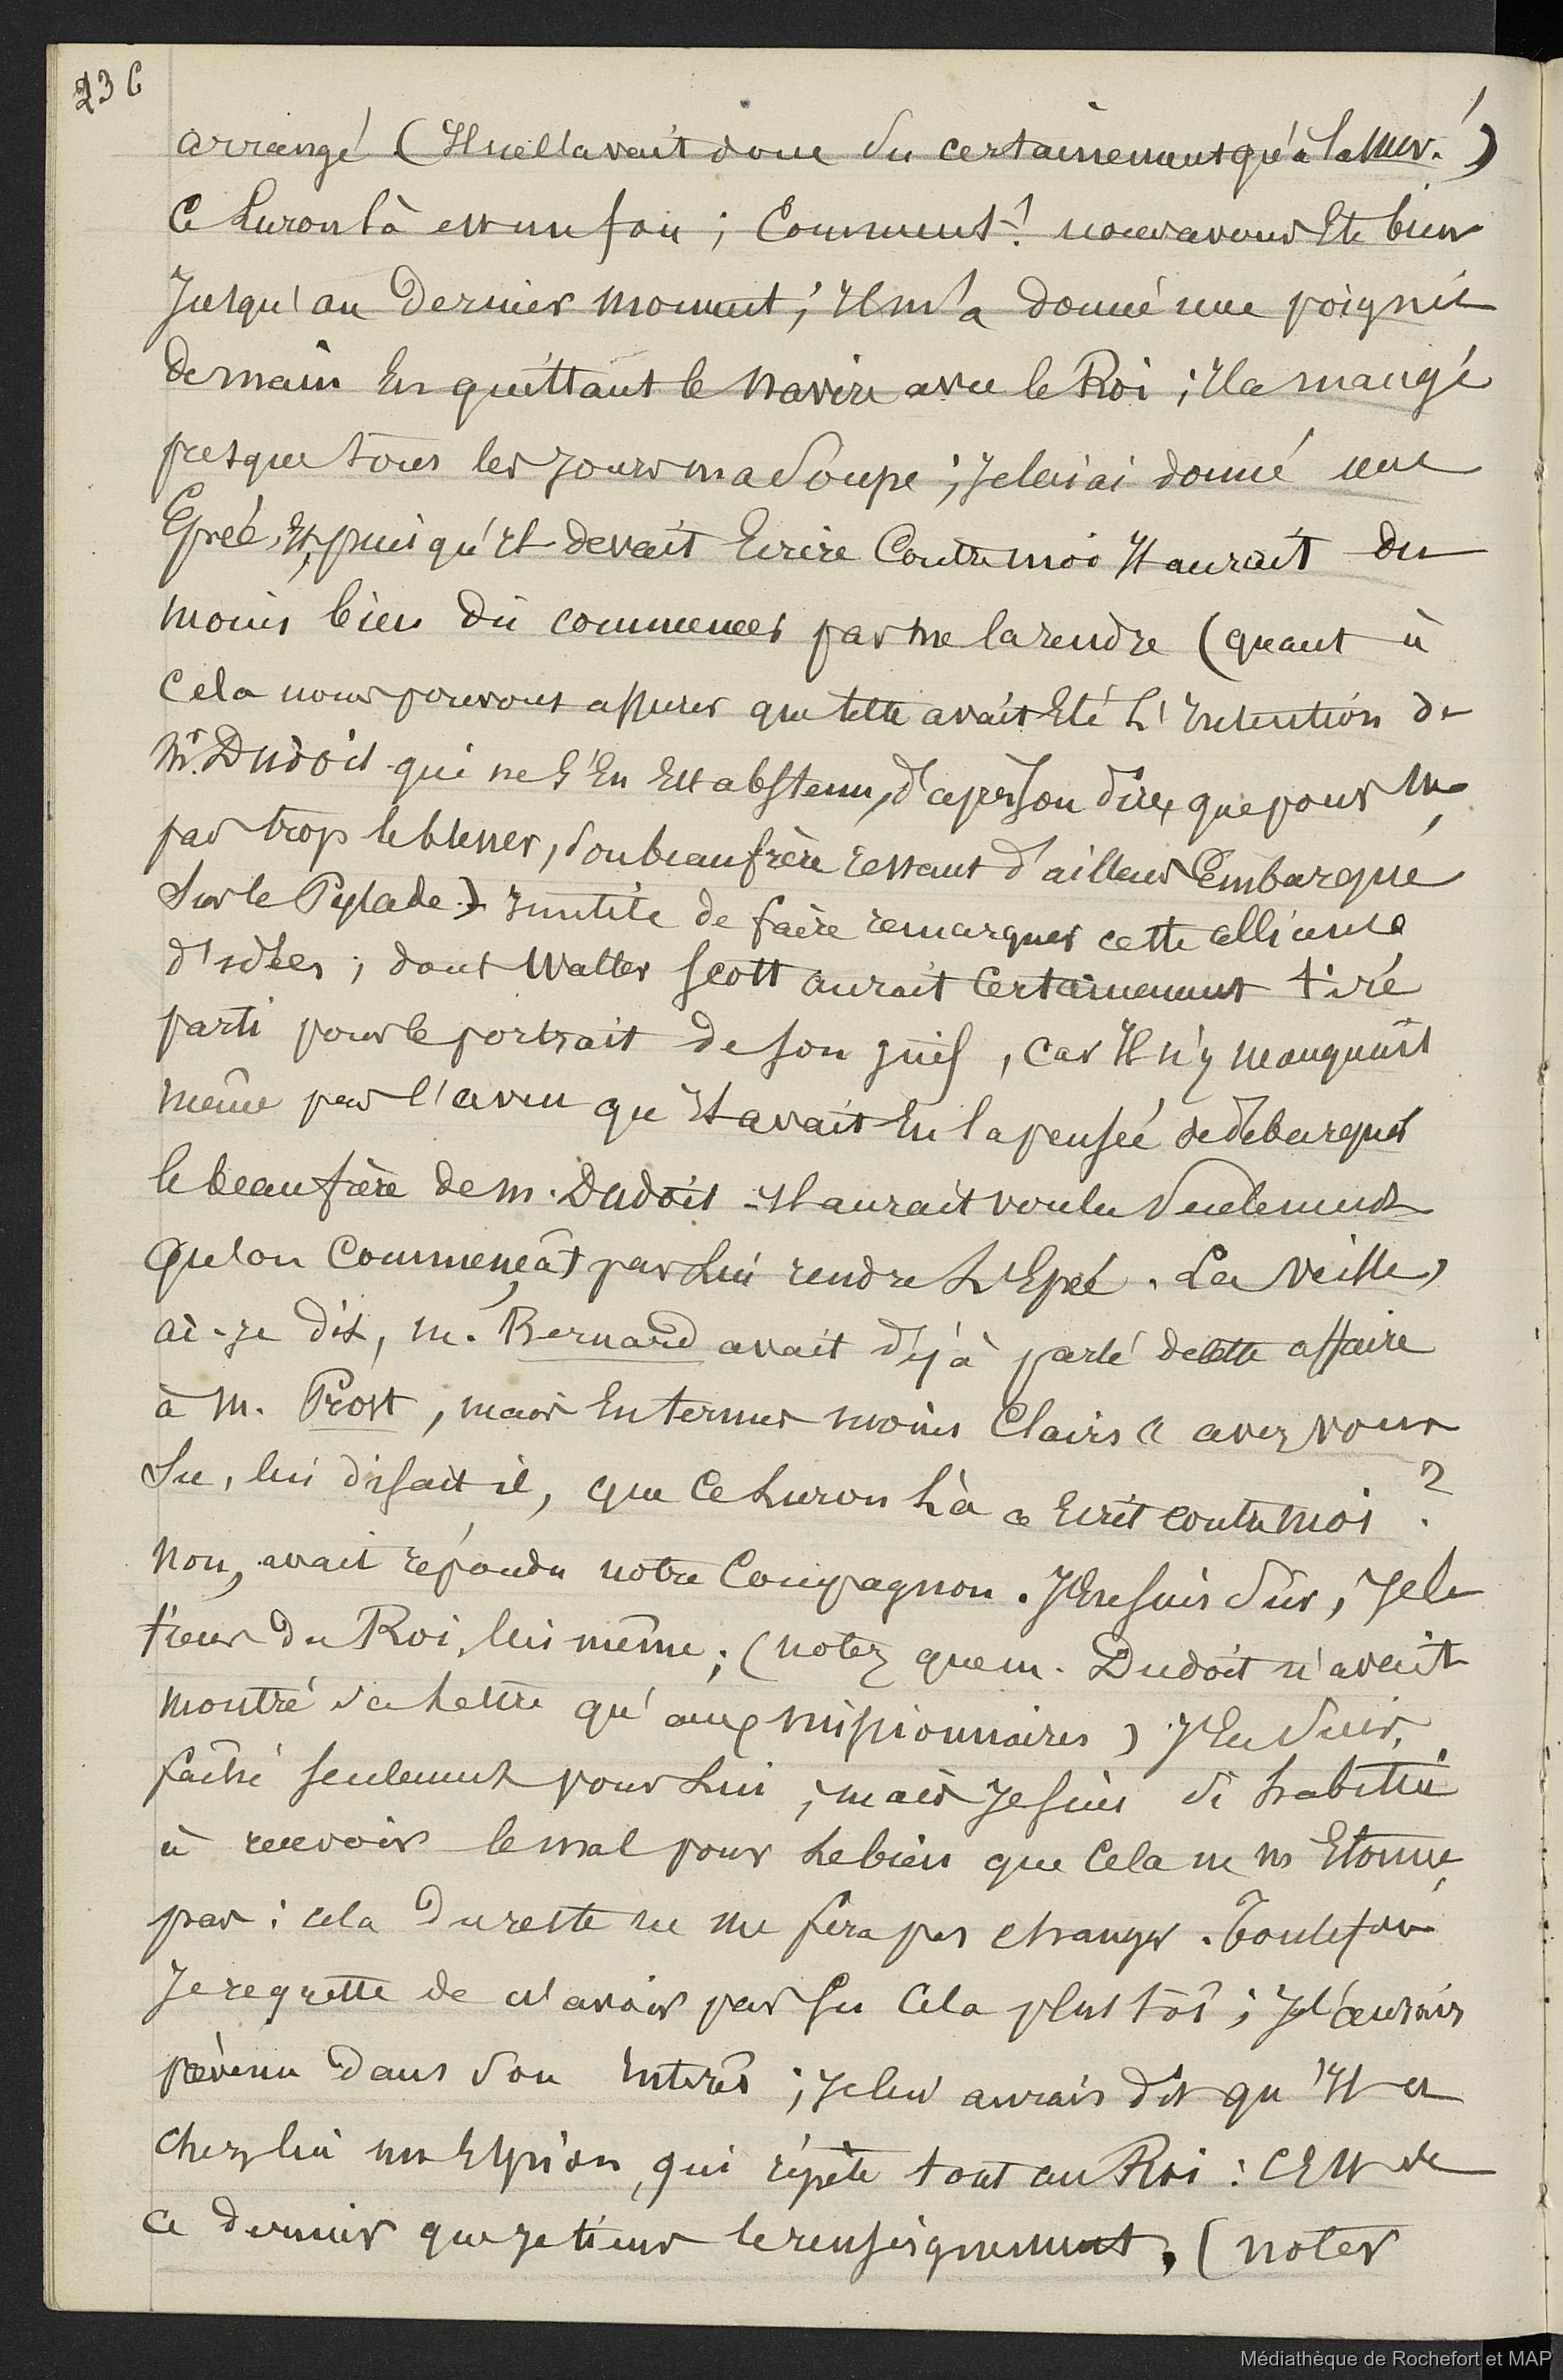 236
arrangé (Il ne l'avait donc su certainement qu'à la mer!)
Ce Luron là est un fou ; Comment! nous avons Eté bien
Jusqu'au Dernier moment ; Il m'a donné une poignée
de main En quittant le navire avec le Roi ; Il a mangé
presque tous les jours ma Soupe ; Je lui ai donné une
Epée, Et, puisqu'Il devait Ecrire Contre moi Il aurait du
moins bien dû commencer par me la rendre (quant à
Cela nous pouvons assurer que telle avait Eté L'Intention de
Mr. Dudoit qui ne s'En Est abstenu, d'après son dire, que pour ne
pas trop le blesser, son beau frère restant d'ailleurs Embarqué
Sur le Pylade.) Inutile de faire remarquer cette alliance
d'idées ; dont Walter Scott aurait Certainement tiré
parti pour le portrait de son juif, car Il n'y manquait
même pas l'aveu qu'Il avait Eu la pensée de débarquer
le beau frère de M. Dudoit - Il aurait voulu Seulement
Qu'on Commençât par Lui rendre L'Epée. La Veille,
ai-je dit, M. Bernard avait déjà parlé de cette affaire
à M. Prost, mais En termes moins Clairs « avez vous
Su, lui disait il, que Ce Luron Là a Ecrit contre moi ?
Non, avait répondu notre Compagnon. J'En suis Sûr, Je le
tiens du Roi, lui même ; (notez que M. Dudoit n'avait
montré sa Lettre qu'aux missionnaires) J'En Suis,
fâché seulement pour Lui ; mais Je suis si habitué
à recevoir le mal pour Le bien que Cela ne m'Etonne
pas : cela du reste ne me fera pas changer. Toutefois
Je regrette de n'avoir pas su Cela plus tôt ; Je l'aurais
prévenu Dans Son Intérêt ; Je lui aurais dit qu'Il a
chez lui un Espion, qui répète tout au Roi : C'Est de
ce dernier que Je tiens le renseignement, (noter
Médiathèque de Rochefort et MAP